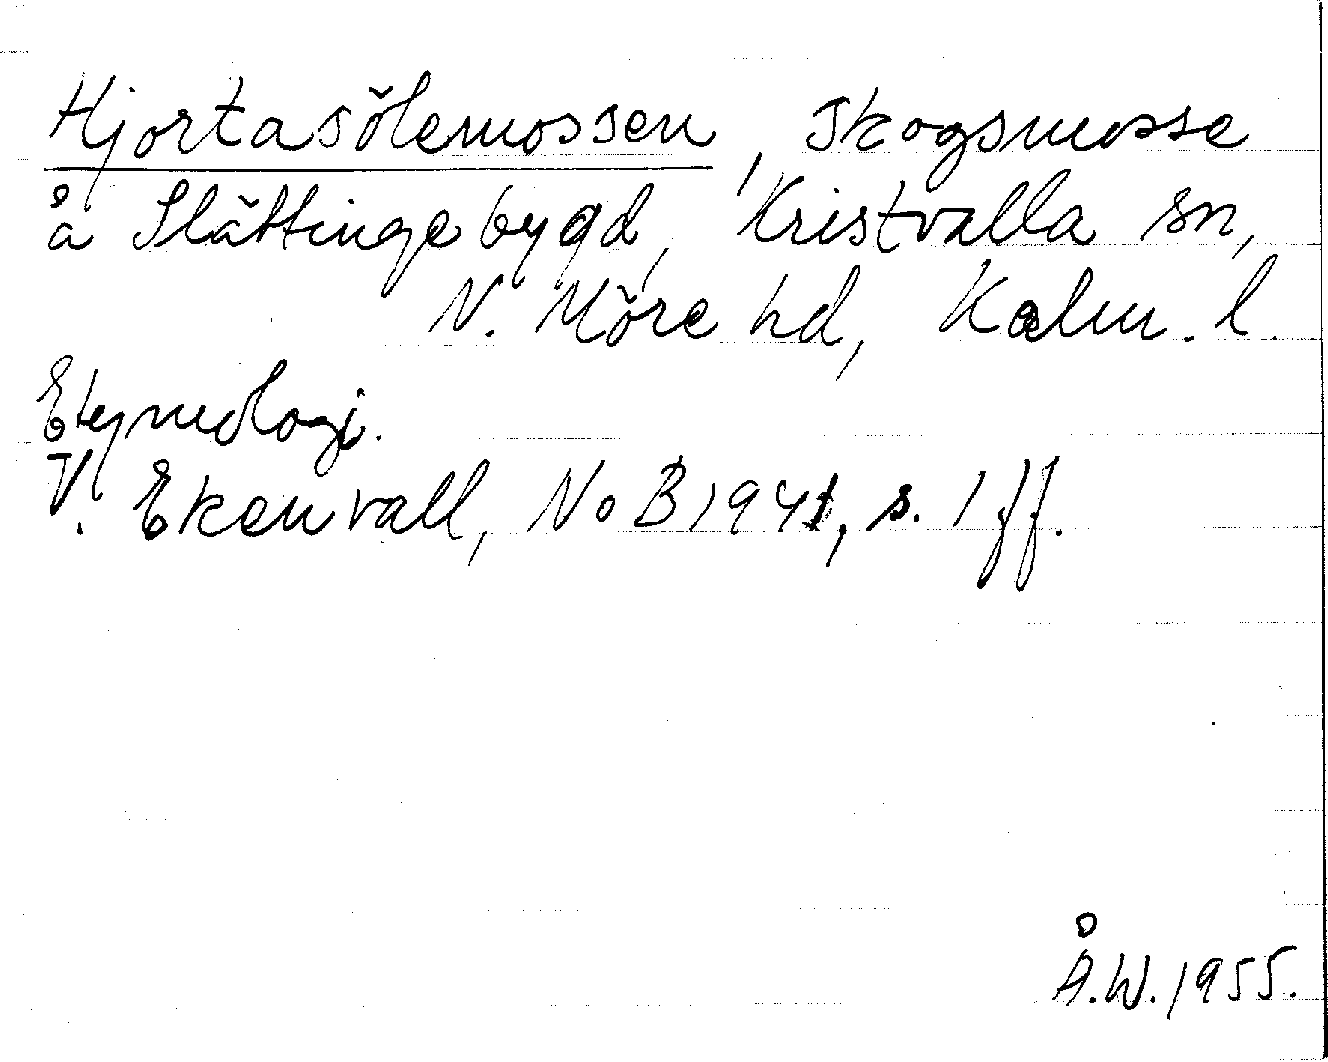 Hjortasölemossen, skogsmosse
å Slättingebygd, Kristvalla sn,
N. Möre hd, Kalm. l.
Etymologi.
V. Ekenvall, NoB 1941, s. 1 ff.
Å.W. 1955.